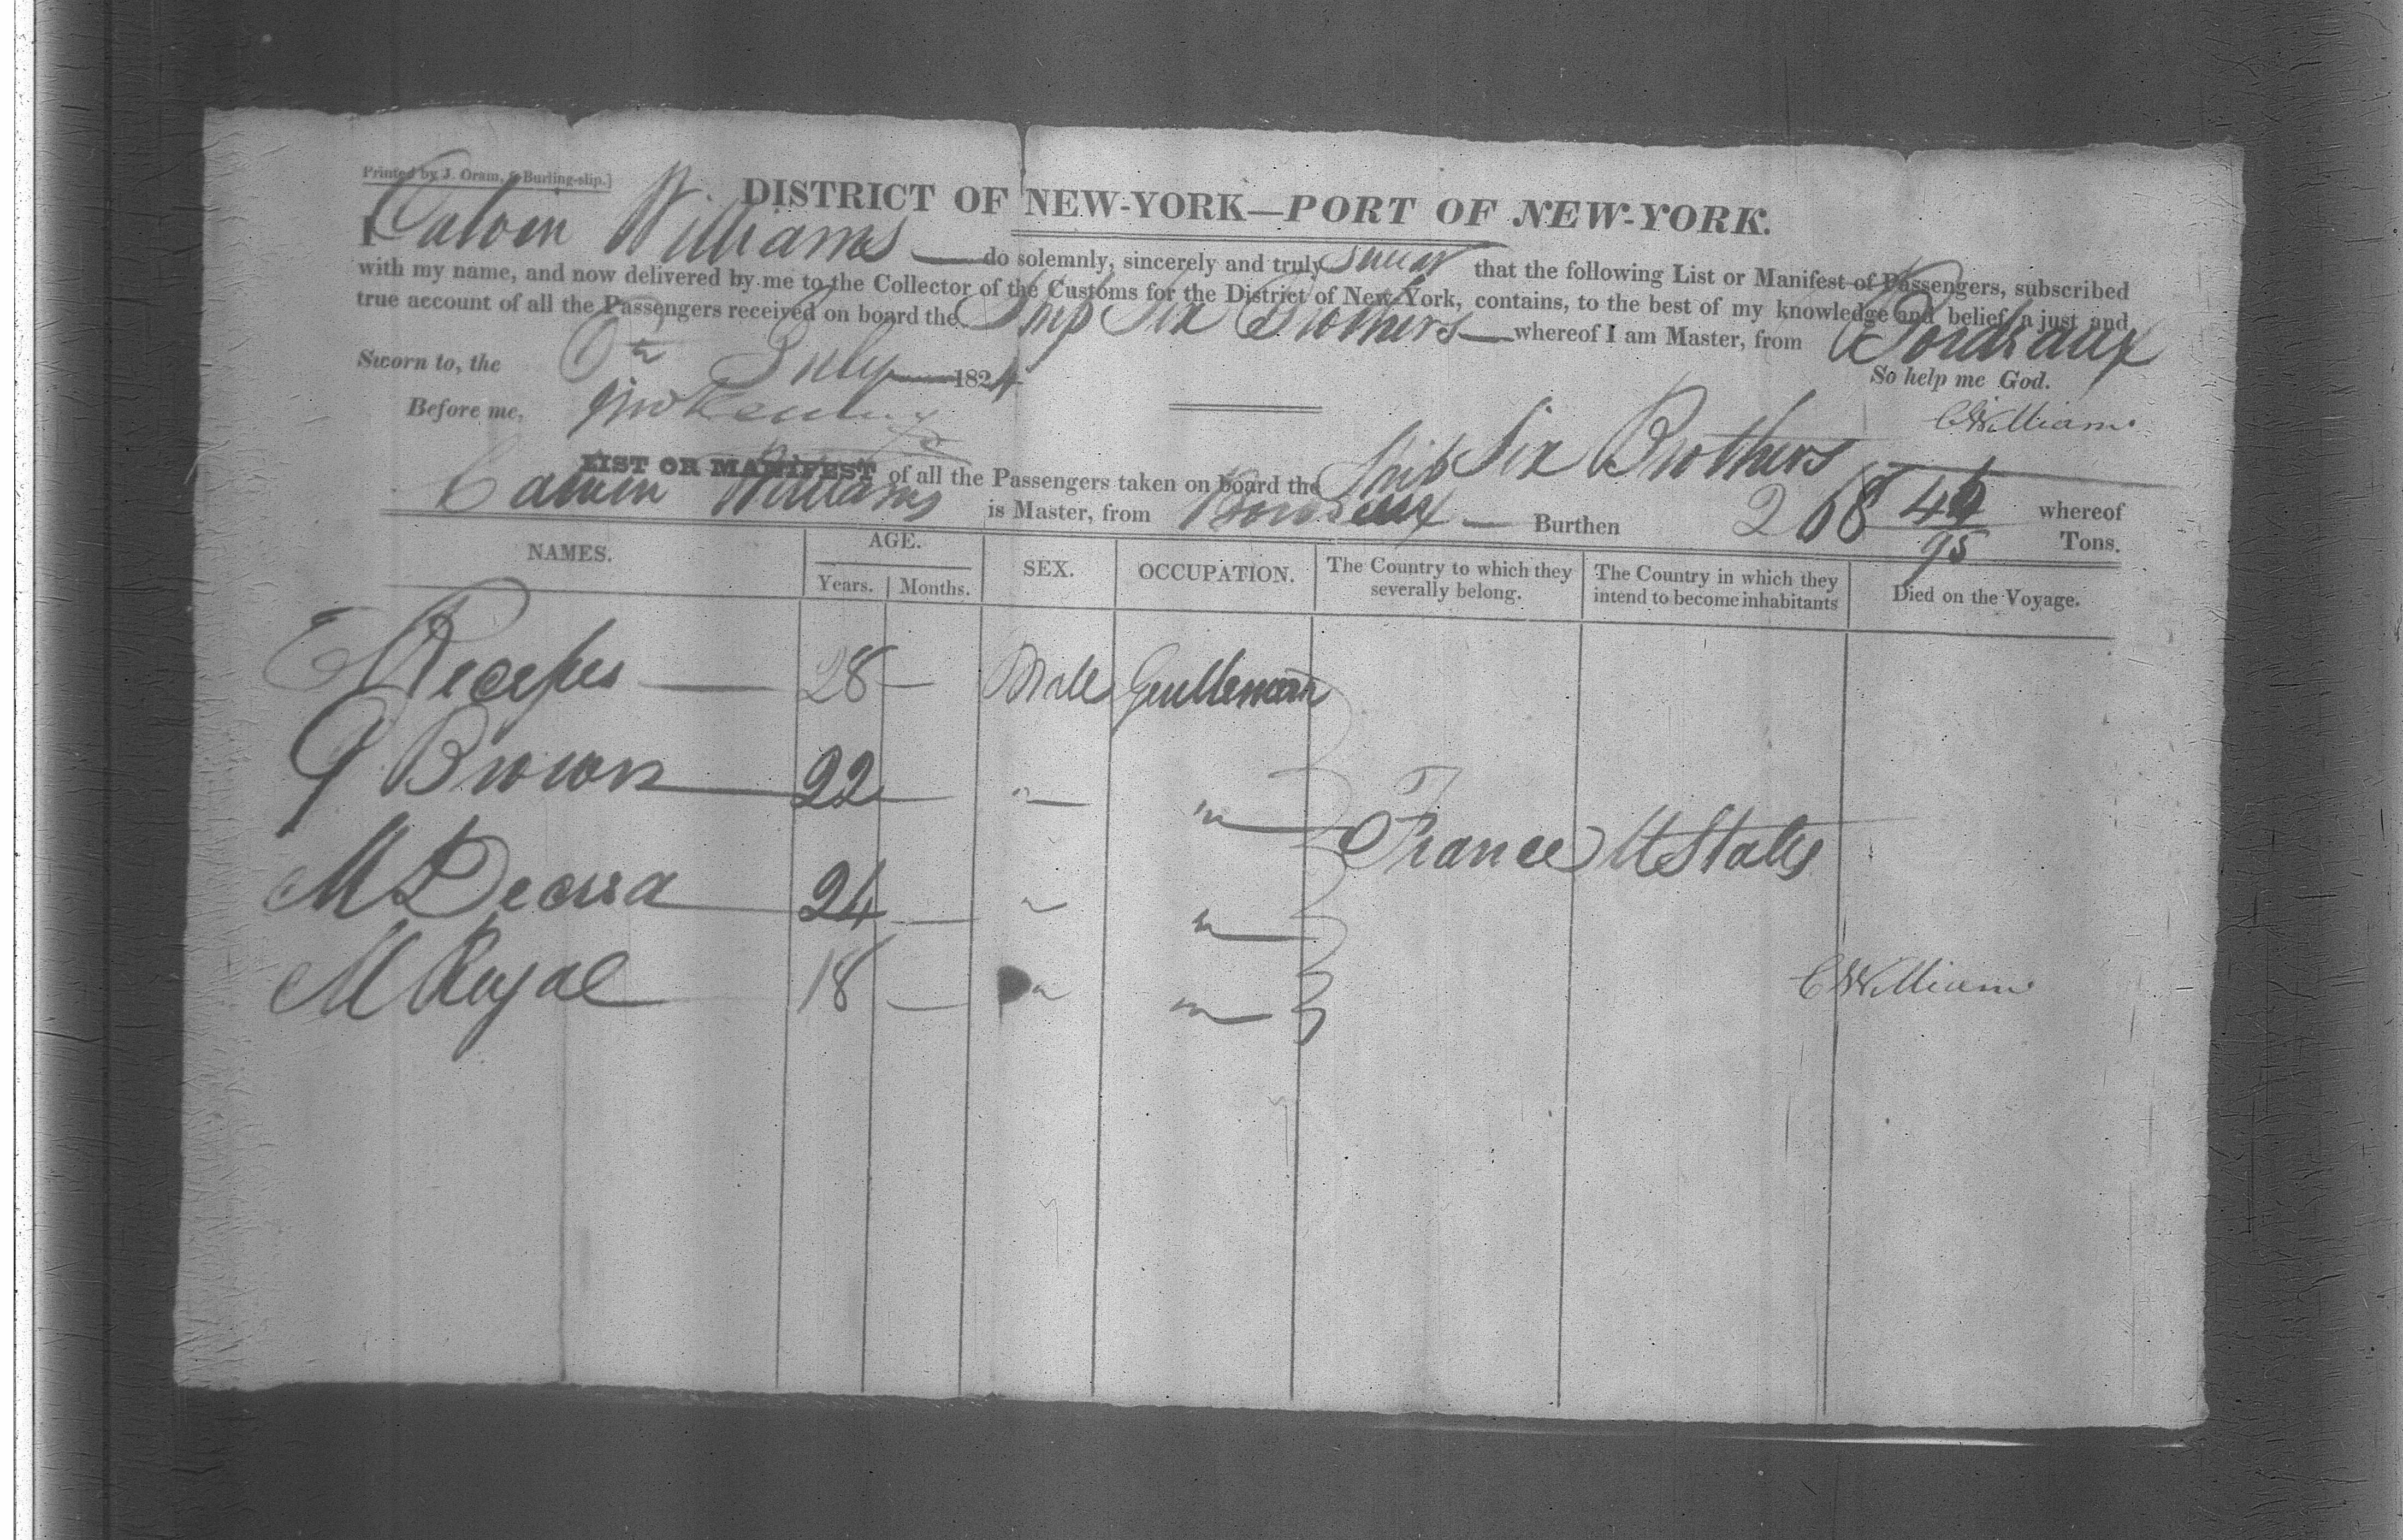 Printed by J. Oram, Burling-slip.]
DISTRICT OF NEW-YORK—PORT OF NEW-YORK.
I Calvin Williams — do solemnly, sincerely and truly swear that the following List or Manifest of Passengers, subscribed
with my name, and now delivered by me to the Collector of the Customs for the District of New-York, contains, to the best of my knowledge and belief, a just and
true account of all the Passengers received on board the Ship Six Brothers — whereof I am Master, from Bordeaux
Sworn to, the July 1824 So help me God.
Before me, CWilliams
LIST OR MANIFEST of all the Passengers taken on board the Ship Six Brothers whereof
Calvin Williams is Master, from Bordeaux — Burthen 268 Tons.
95
NAMES. AGE. SEX. OCCUPATION. The Country to which they severally belong. The Country in which they intend to become inhabitants Died on the Voyage.
Years. Months.
28 — Male Gentleman
G Brown 22 — " "
France U States
M 24 — " "
M Royal 18 — " "
CWilliams